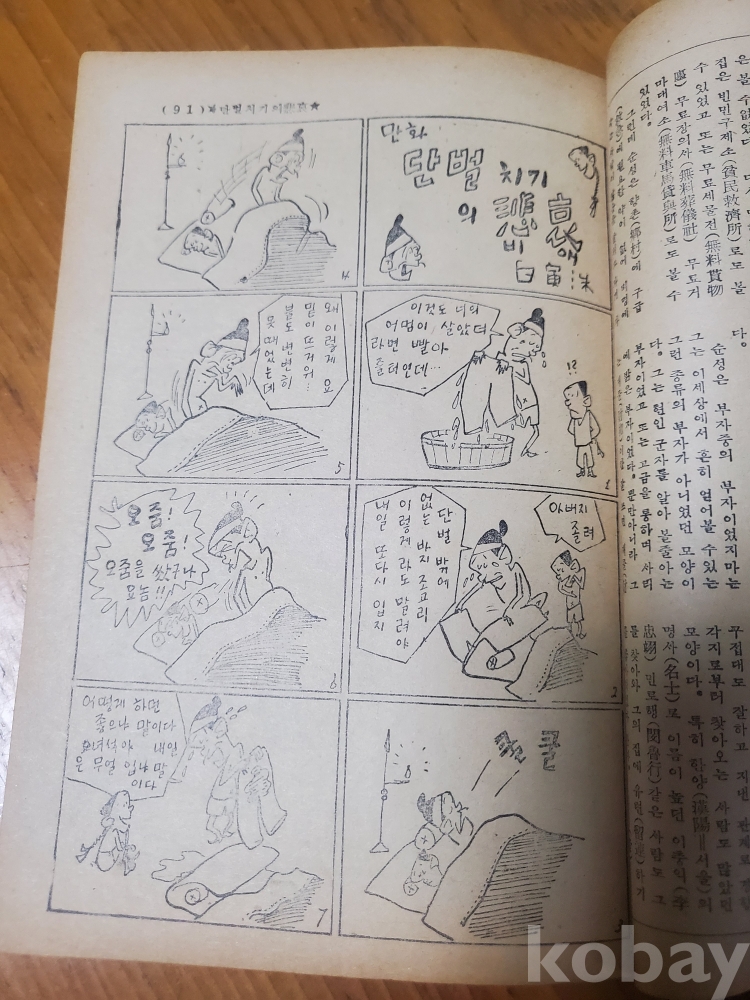 (91)★단벌치기의悲哀★
만화
단벌 치기
의 悲哀
白寅洙
이것도 너의
어멈이 살았더
라면 빨아
줄터인데…
!?
1
아버지
졸려
단벌 밖에
없는 바지 조고리
이렇게 라도 말려야
내일 또다시 입지
2
쿨 쿨
3
4
왜 이렇게 요
밑이 뜨거워…
불도 변변히
못 때었는데
5
오줌!
오줌!
오줌을 쌌구나
요놈!!
6
어떻게 하면
좋으냐 말이다
요녀석아 내일
은 무얼 입냐 말
이다
7
은 볼 수 없었다
집은 빈민구제소(貧民救濟所)로도 볼
수 있었고 또는 무료세물전(無料貰物
廛) 무료장의사(無料葬儀社) 무료거
마대여소(無料車馬貸與所)로도 볼 수
있었다.
그런데 순성은 향촌(鄕村)에 구급
순성은 부자중의 부자이었지마는
그는 이세상에서 흔히 얻어볼 수 있는
그런 종류의 부자가 아니었던 모양이
다. 그는 현인 군자를 알아 볼줄아는
부자이었고 또는 고금을 통하며 사리
에 밝은 부자이었다. 뿐만아니라 그
꾸접대도 잘하고 지낸 관계로
각지로부터 찾아오는 사람도 많았던
모양이다. 특히 한양(漢陽=서울)의
명사(名士)로 이름이 높던 이충익(李
忠翊) 민로행(閔魯行)같은 사람도 그
를 찾아와 그의 집에 유련(留連)하기
kobay